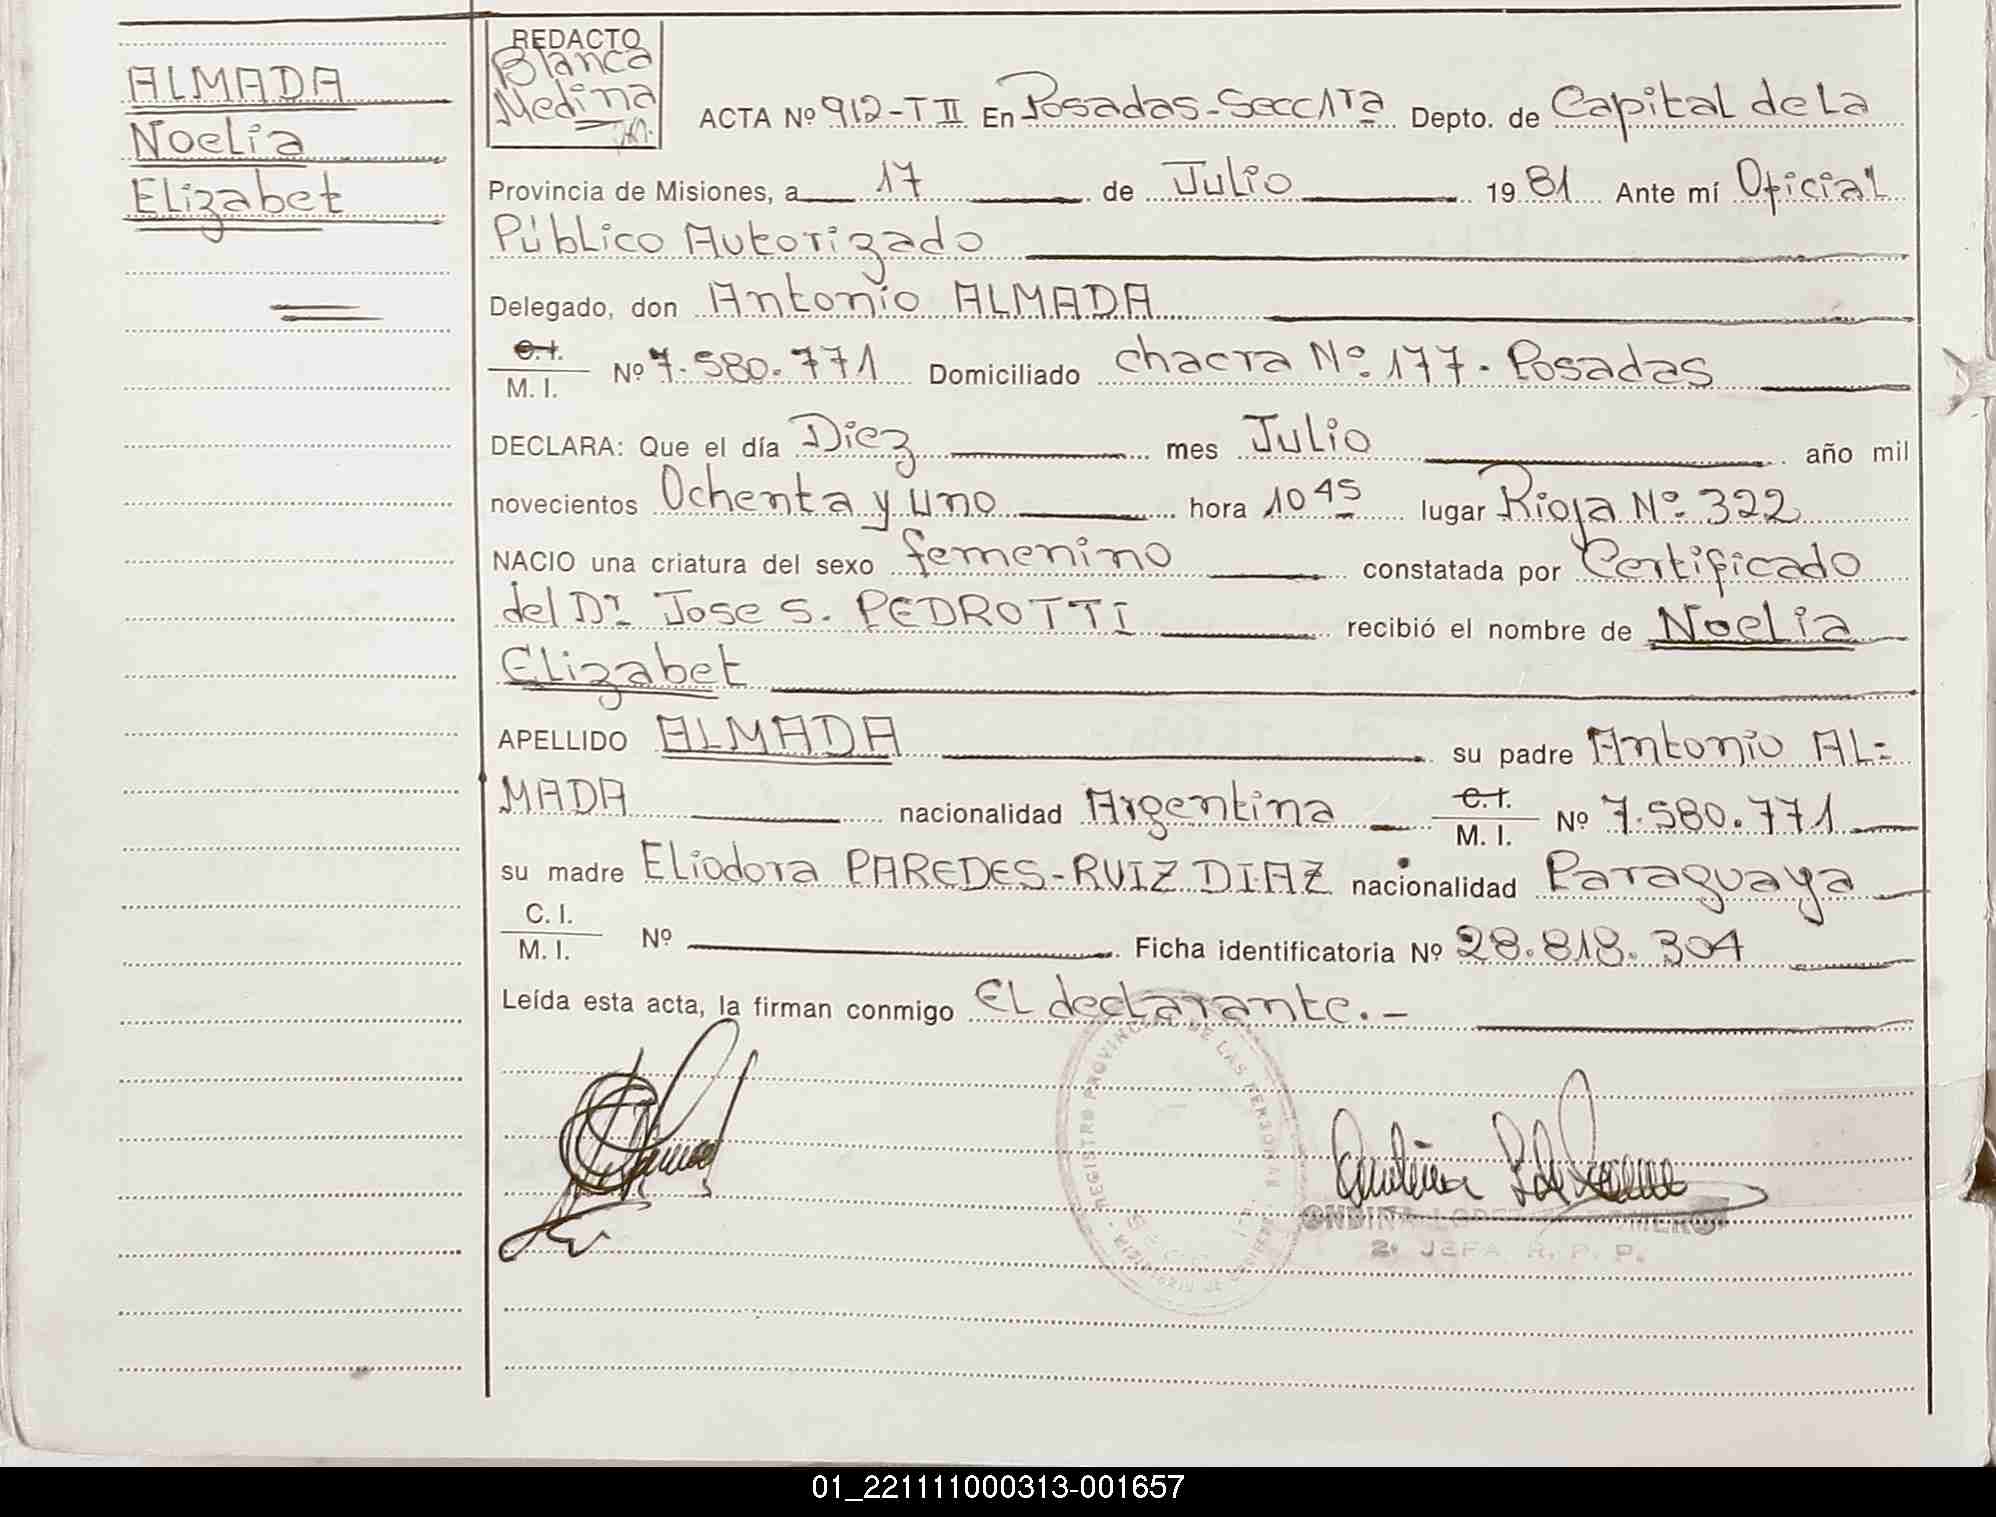 ALMADA
Noelia
Elizabet
REDACTO
Blanca
Medina
ACTA Nº 912-T II En Posadas-Secc 1ra Depto. de Capital de La
Provincia de Misiones, a 17 de Julio 1981 Ante mí Oficial
Público Autorizado
Delegado, don Antonio ALMADA
C.I.
M. I. Nº 7.580.771 Domiciliado chacra Nº 177. Posadas
DECLARA: Que el día Diez mes Julio año mil
novecientos Ochenta y uno hora 10 45 lugar Rioja Nº 322
NACIO una criatura del sexo femenino constatada por Certificado
del Dr. Jose S. PEDROTTI recibió el nombre de Noelia
Elizabet
APELLIDO ALMADA su padre Antonio AL=
MADA nacionalidad Argentina C.I. M. I. Nº 7.580.771
su madre Eliodora PAREDES-RUIZ DIAZ nacionalidad Paraguaya
C. I.
M. I. Nº Ficha identificatoria Nº 28.818.304
Leída esta acta, la firman conmigo El declarante.-
REGISTRO PROVINCIAL DE LAS PERSONAS
ONDINA LOPEZ ROMERO
2º JEFA R. P. P.
01_221111000313-001657